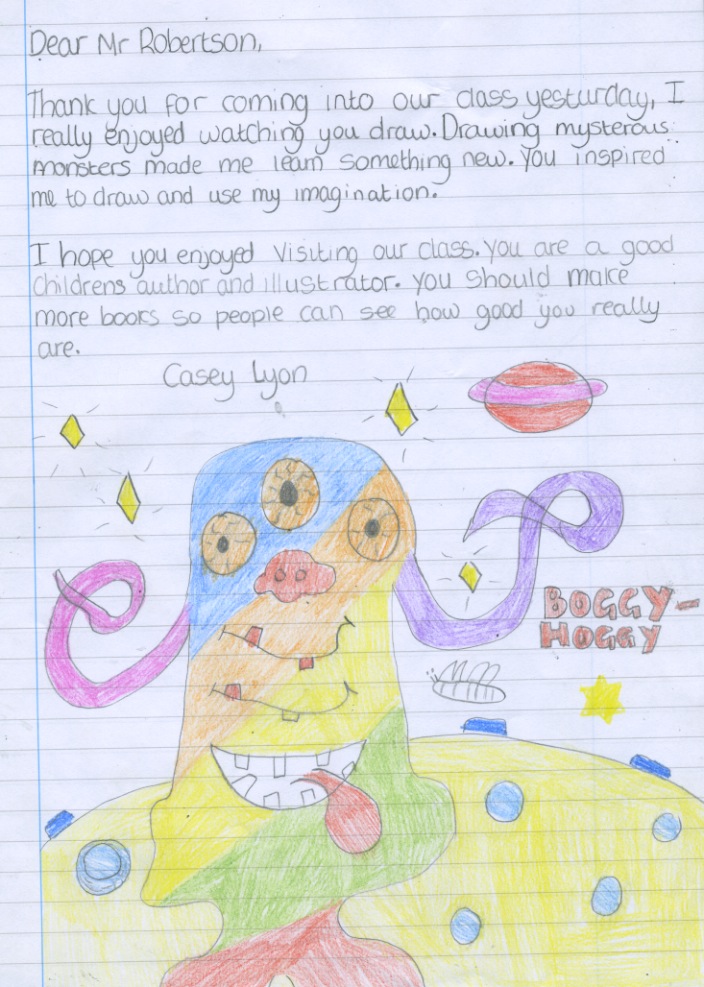 Dear Mr Robertson,
Thank you for coming into our class yesturday, I
really enjoyed watching you draw. Drawing mysterous
monsters made me learn something new. You inspired
me to draw and use my imagination.
I hope you enjoyed visiting our class. You are a good
childrens author and illustrator. You should make
more books so people can see how good you really
are.
Casey Lyon
BOGGY-
HOGGY